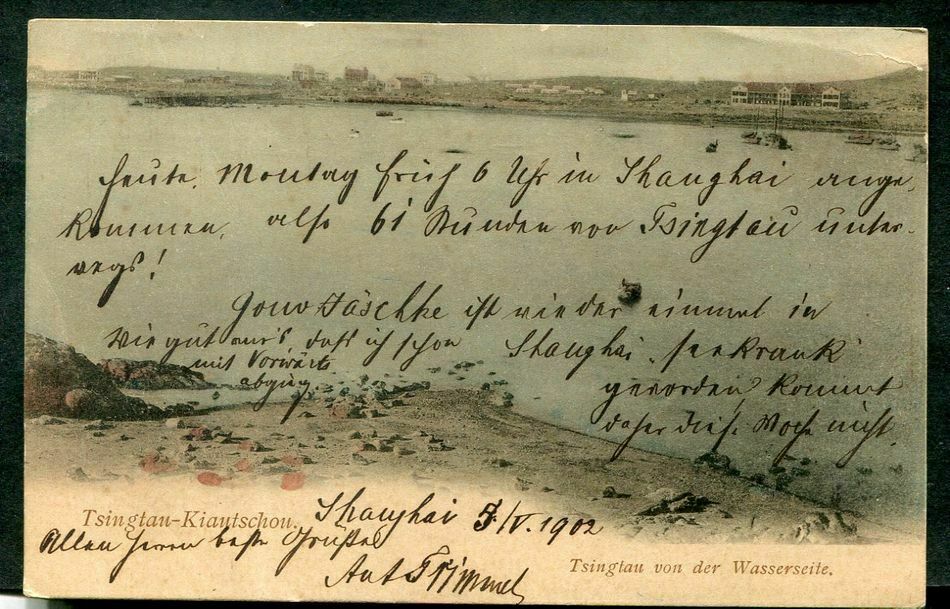 Heute, Montag früh 6 Uhr in Shanghai ange-
kommen, also 61 Stunden von Tsingtau unter-
wegs!
Gouv Jäschke ist wieder einmal in
Shanghai seekrank
geworden, kommt
daher diese Woche nicht.
Wie gut war's, daß ich schon
mit Vorwärts
abging
Tsingtau-Kiautschou.
Shanghai 5/V. 1902
Allen Herren beste Grüße
Ant Trimmel
Tsingtau von der Wasserseite.